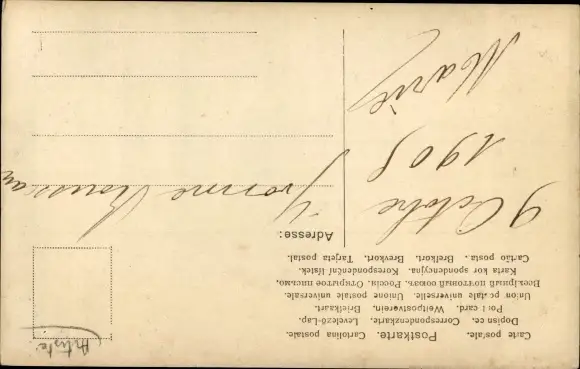 Carte postale. Postkarte. Cartolina postale.
Dopisnice. Correspondenzkarte. Levelező-Lap.
Post card. Weltpostverein. Briefkaart.
Union postale universelle. Unione postale universale.
Всемірный почтовый союзъ. Россія. Открытое письмо.
Karta korespondencyjna. Korespondenční lístek.
Cartão postal. Brefkort. Brevkort. Tarjeta postal.
Adresse:
9 Octobre
Marie
Yvonne
Artiste